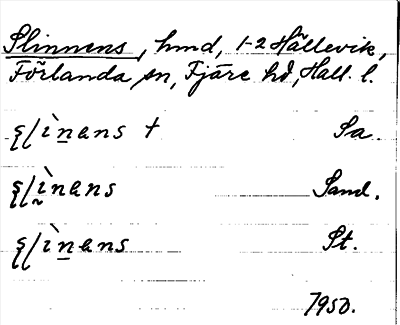 Slinnens, hmd, 1-2 Hällevik,
Förlanda sn, Fjäre hd, Hall. l.
ʂlìnans + Sa.
ʂlìnans Sand.
ʂlìnans St.
1950.